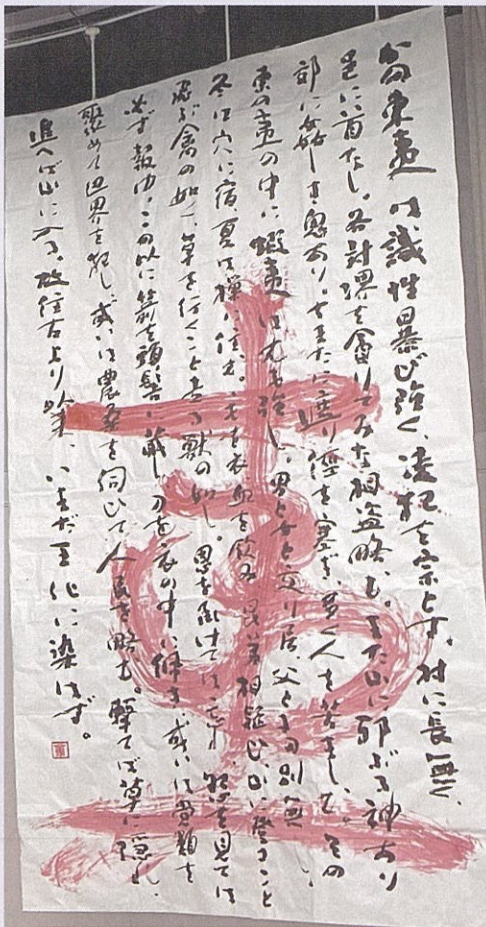 東夷は識性暴び強く、凌犯を宗とす。村に長無く、
邑に首なし。各封堺を貪りてみな相盗略む。また山に邪ぶる神あり
郊に姦しき鬼あり。ちまたに遮り径を塞ぎ、多く人を苦ましむ。その
東の夷の中に蝦夷は尤も強し。男と女と交り居、父と子の別無し、
冬は穴に宿夏は樔に住む。毛を衣血を飲み昆弟相疑ひ山に登ること
飛ぶ禽の如く、草を行くこと走る獣の如し。恩を承けては忘れ、怨を見ては
必ず報ゆ。この以に箭を頭髻に蔵し刀を衣の中に佩き或いは党類を
聚めて辺界を犯し、或いは農桑を伺ひて人民を略む。撃てば草に隠れ、
追へば山に入る。故往古より以来、いまだ王化に染はず。